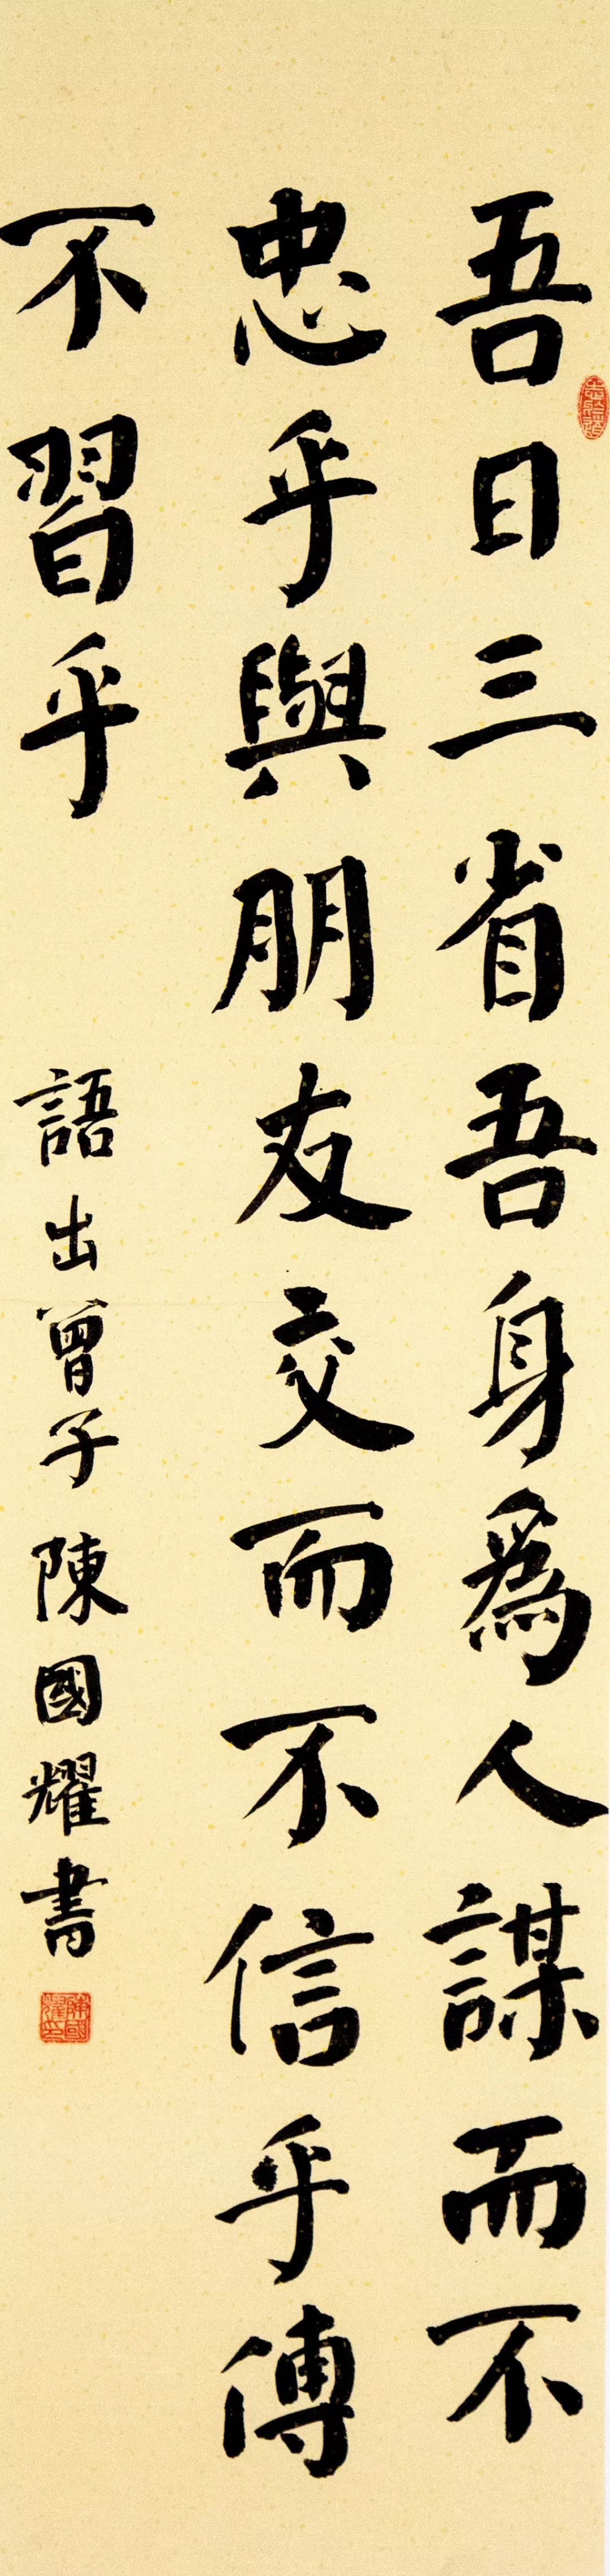 吾日三省吾身爲人謀而不
忠乎與朋友交而不信乎傳
不習乎
語出曾子陳國耀書
陳國耀印